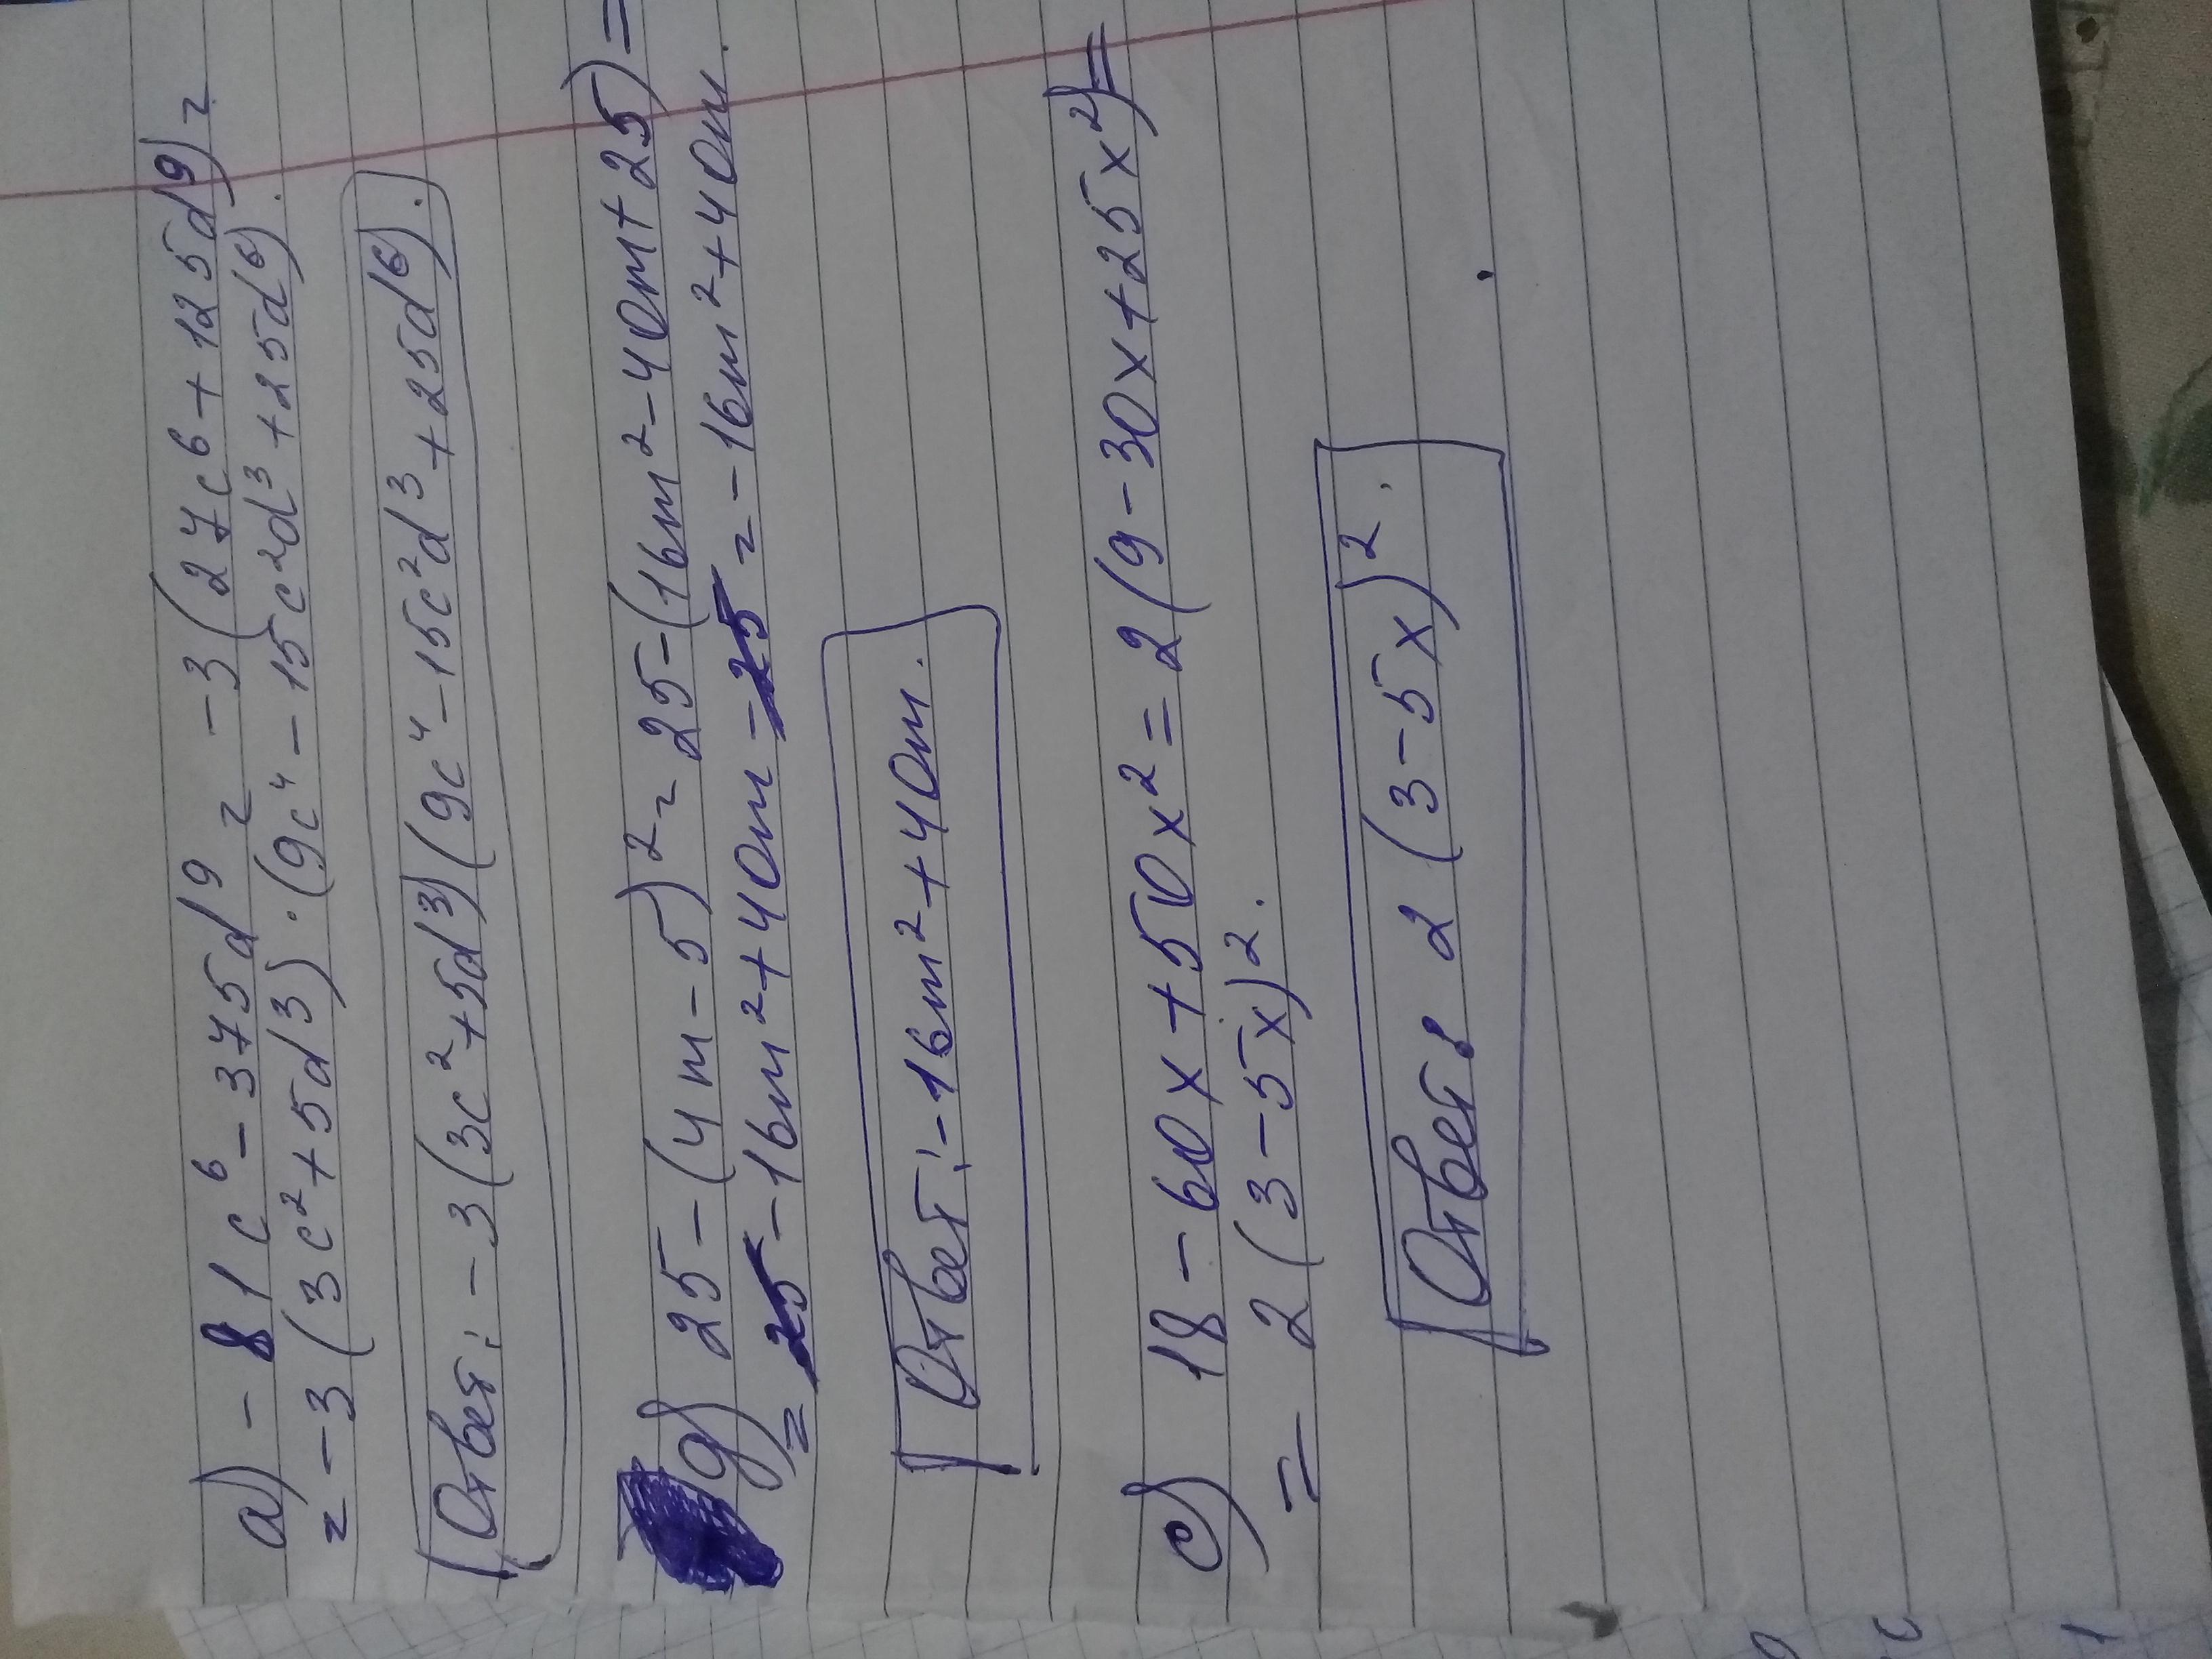 а) - 81c⁶ - 375d⁹ = -3(27c⁶ + 125d⁹) =
= -3(3c² + 5d³)·(9c⁴ - 15c²d³ + 25d⁶).
Ответ: -3(3c² + 5d³)(9c⁴ - 15c²d³ + 25d⁶).
д) 25 - (4m - 5)² = 25 - (16m² - 40m + 25) =
= 25 - 16m² + 40m - 25 = -16m² + 40m.
Ответ: -16m² + 40m.
с) 18 - 60x + 50x² = 2(9 - 30x + 25x²) =
= 2(3 - 5x)².
Ответ: 2(3 - 5x)².